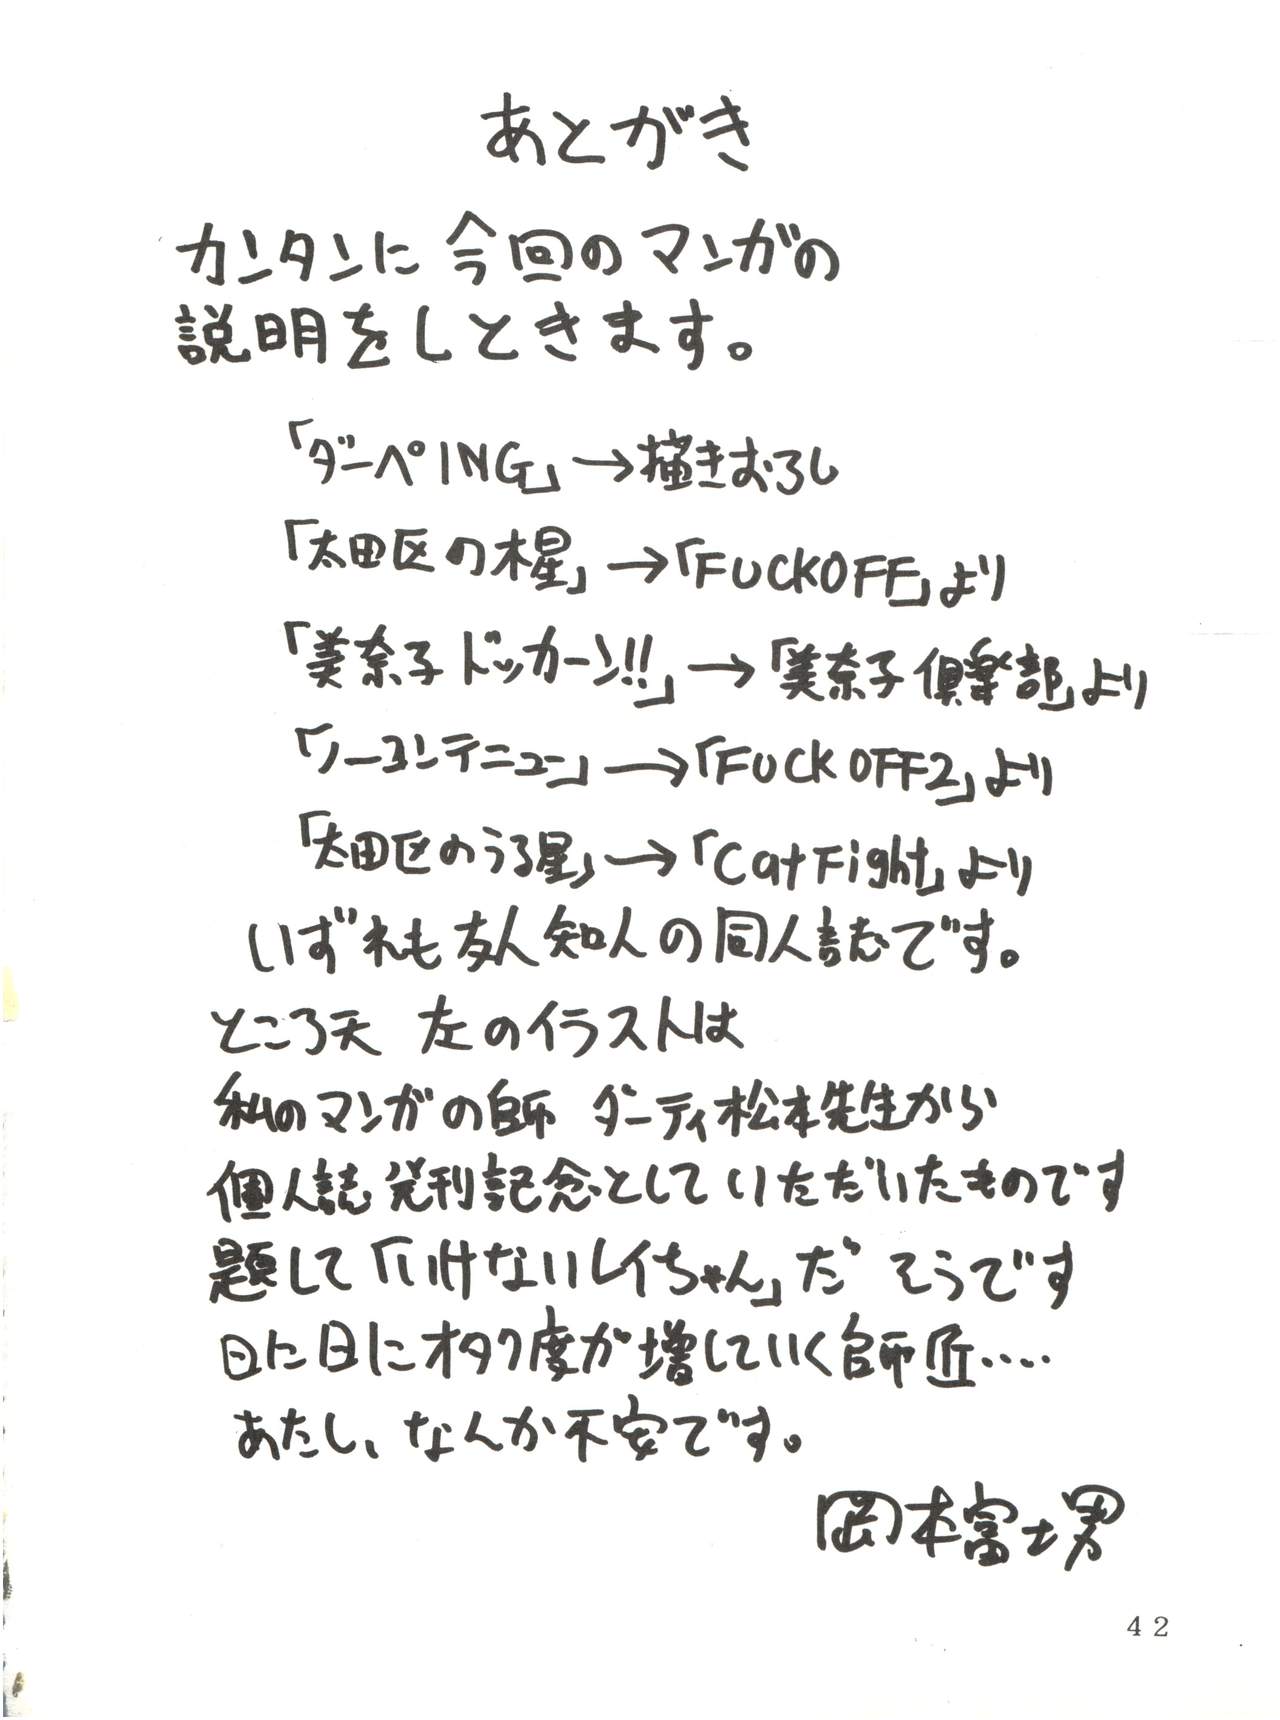 あとがき
カンタンに 今回のマンガの
説明をしときます。
「ダーペING」→描きおろし
「太田区の木星」→「FUCKOFF」より
「美奈子ドッカーン!!」→「美奈子倶楽部」より
「ノーコンテニュー」→「FUCK OFF2」より
「太田区のうる星」→「CatFight」より
いずれも友人知人の同人誌です。
ところ天 左のイラストは
私のマンガの師 ダーティ松本先生から
個人誌発刊記念としていただいたものです
題して「いけないレイちゃん」だ そうです
日に日にオタク度が増していく師匠‥‥
あたし、なんか不安です。
岡本富士男
42